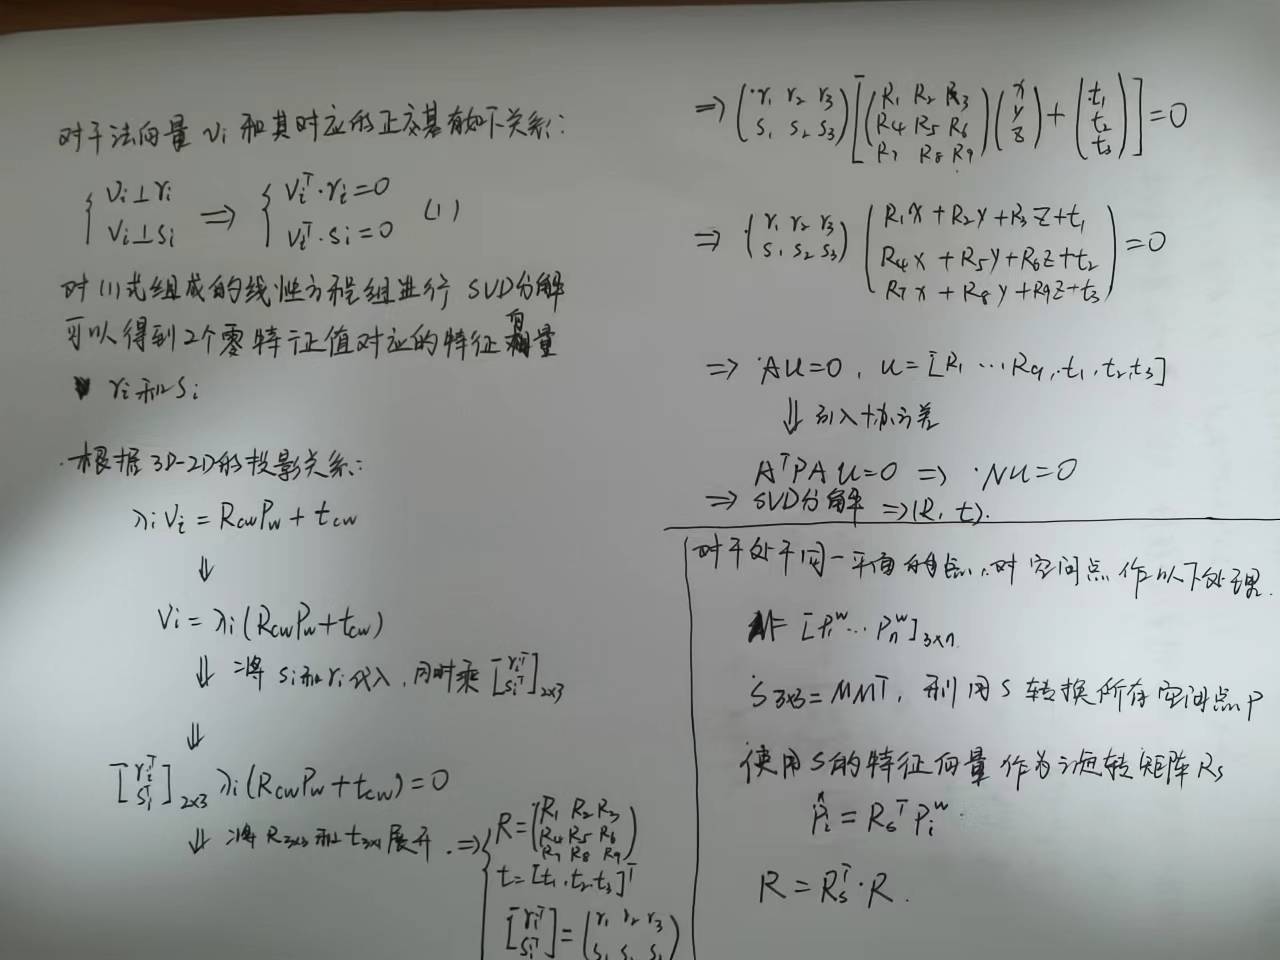 对于法向量 Vi 和其对应的正交基有如下关系:
{ Vi⊥ri
Vi⊥si ⇒ { Viᵀ·ri=0
Viᵀ·si=0 (1)
对(1)式组成的线性方程组进行 SVD分解
可以得到2个零特征值对应的特征向量
ri和si
根据3D-2D的投影关系:
λiVi = RcwPw + tcw
⇓
Vi = λi(RcwPw+tcw)
⇓ 将si和ri代入,同时乘 [riᵀ
siᵀ]2x3
⇓
[riᵀ
siᵀ]2x3 λi(RcwPw+tcw)=0
⇓ 将R3x3和t3x1展开. ⇒ { R=(R1 R2 R3
R4 R5 R6
R7 R8 R9)
t=[t1,t2,t3]ᵀ
[riᵀ
siᵀ]=(r1 r2 r3
⇒ (r1 r2 r3
s1 s2 s3) [(R1 R2 R3
R4 R5 R6
R7 R8 R9) (x
y
z) + (t1
t2
t3)]=0
⇒ (r1 r2 r3
s1 s2 s3) (R1x+R2y+R3z+t1
R4x+R5y+R6z+t2
R7x+R8y+R9z+t3)=0
⇒ AU=0, u=[R1…R9,t1,t2,t3]
⇓ 引入协方差
AᵀPAU=0 ⇒ NU=0
⇒ SVD分解 ⇒(R, t).
对于处于同一平面的点,对空间点作以下处理.
M=[P1ʷ…Pnʷ]3xn
S3x3=MMᵀ, 利用S转换所有空间点P
使用S的特征向量作为旋转矩阵Rs
P̂i = RsᵀPiʷ
R = Rsᵀ·R.